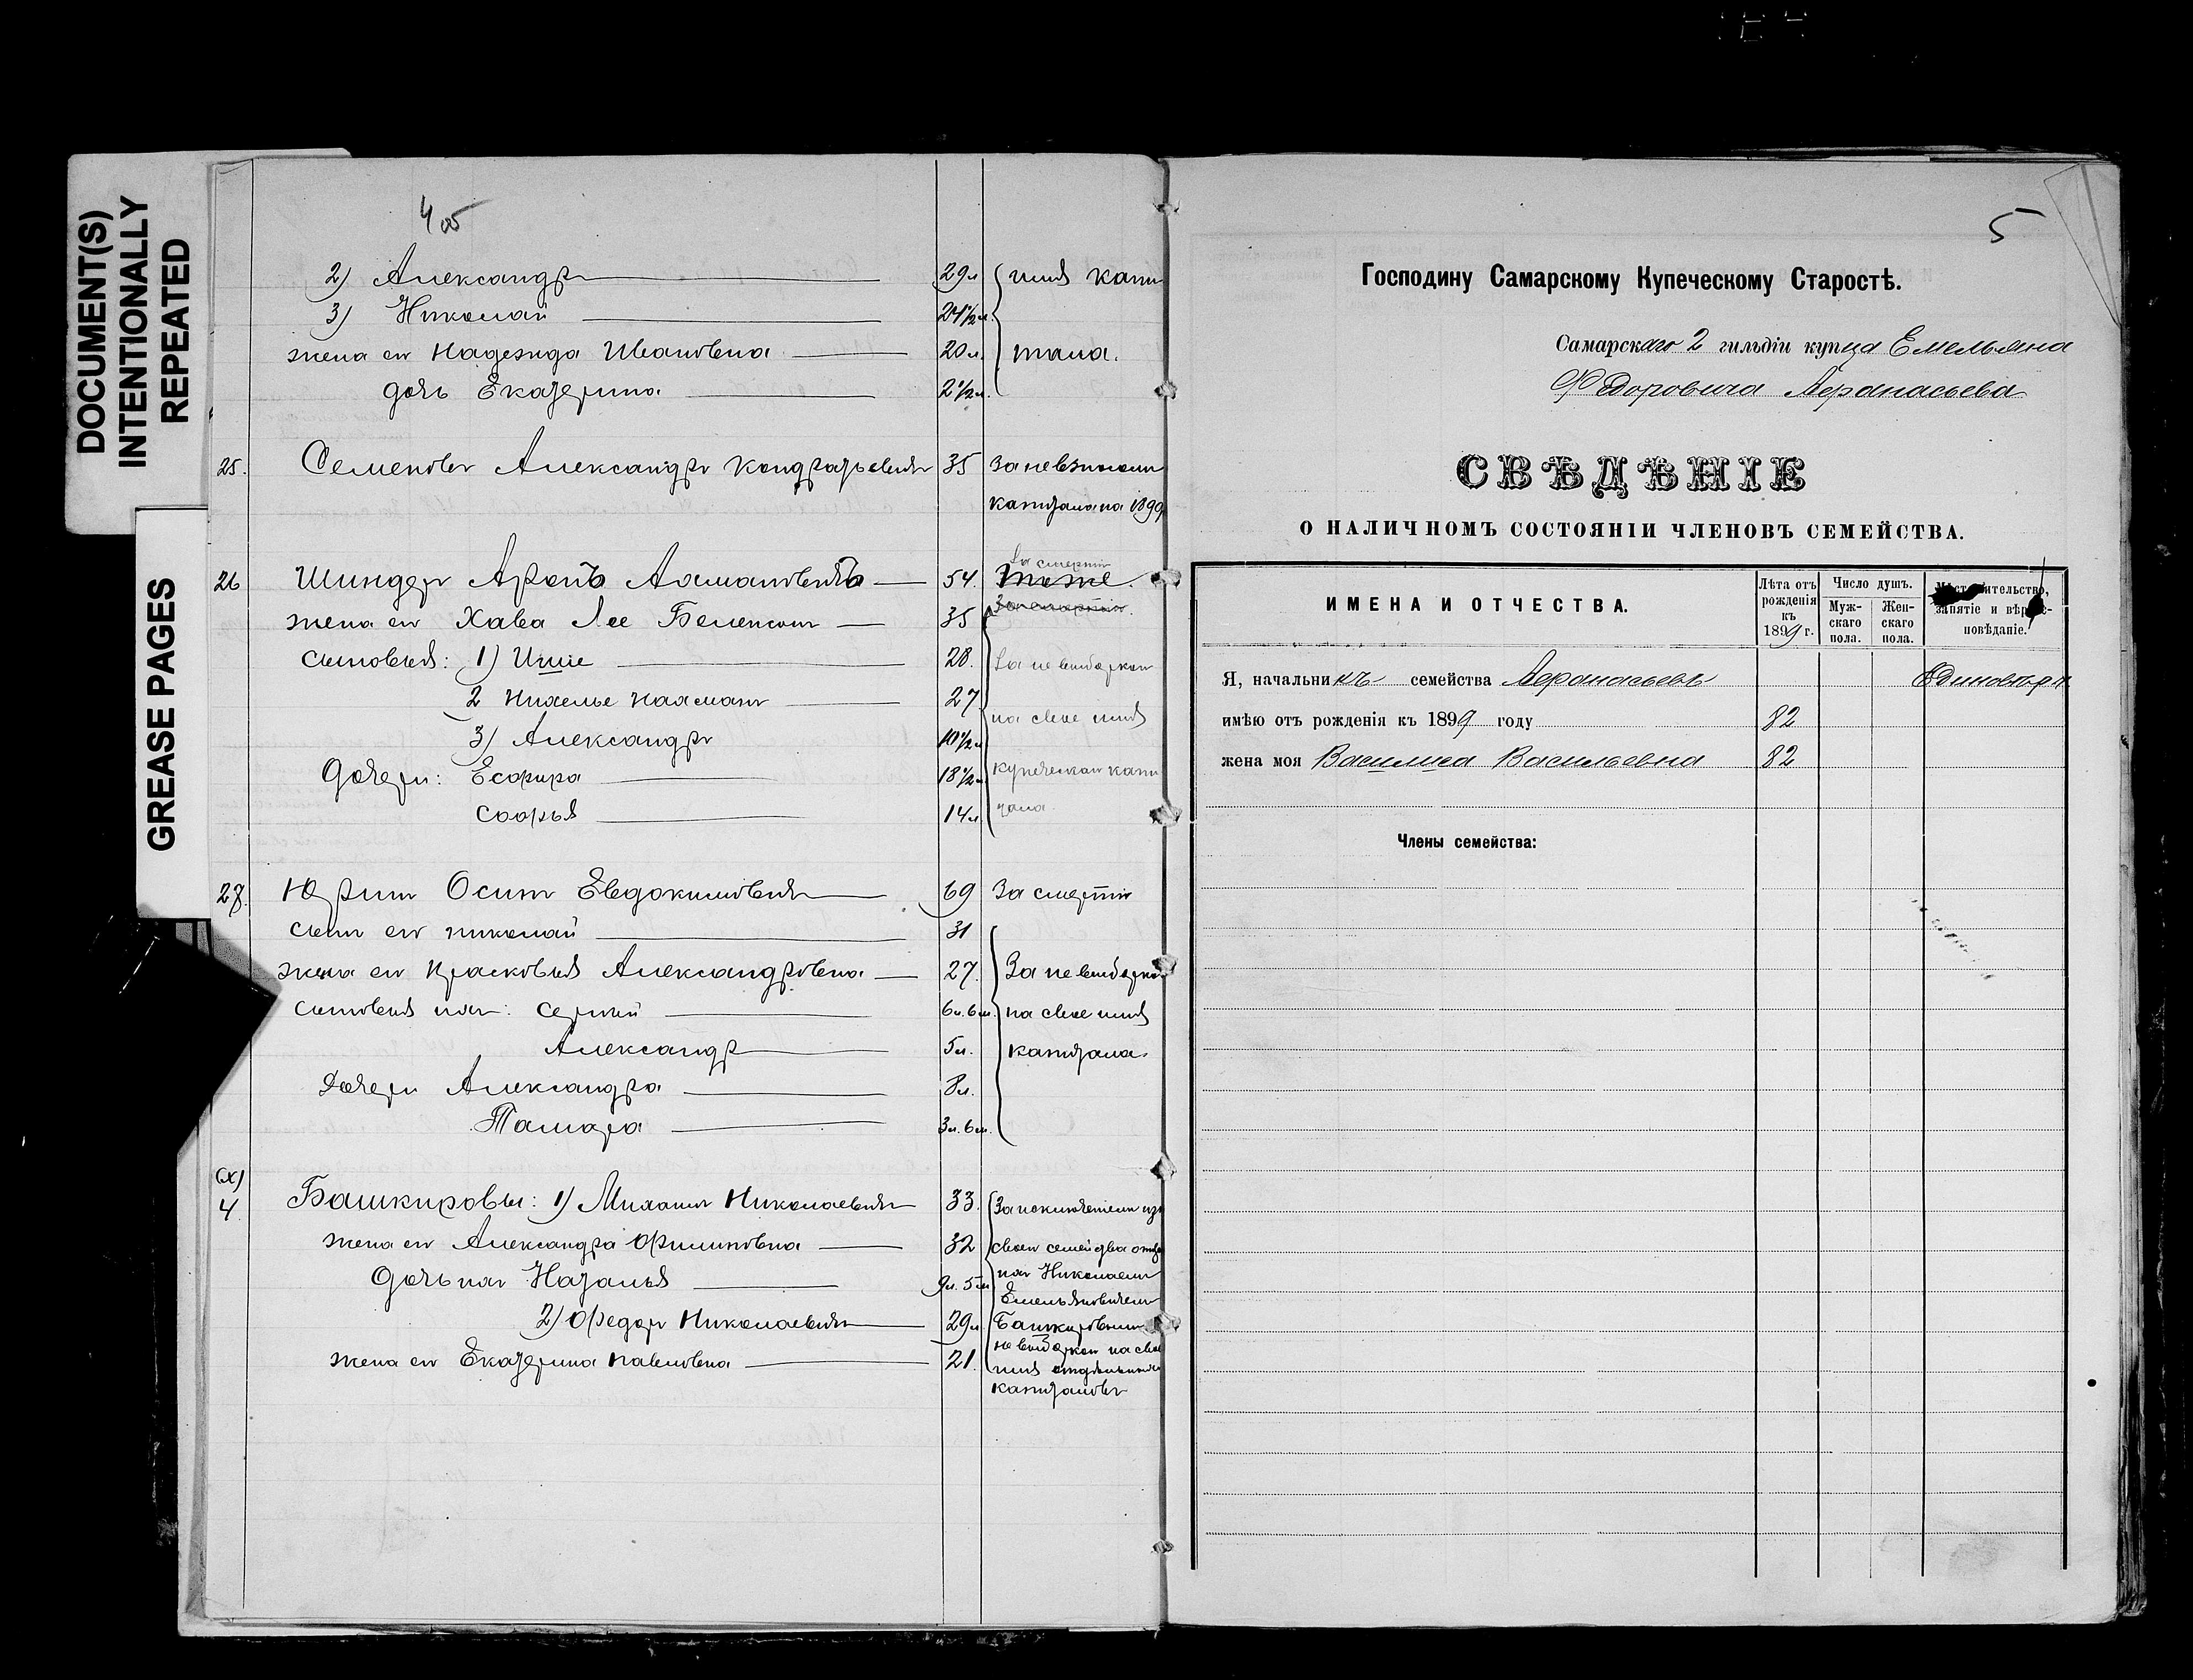 DOCUMENT(S)
INTENTIONALLY
REPEATED
GREASE PAGES
4 об
2) Александръ 29л имя капи
3) Николай 24 1/2 л.
жена ег Надежда Ивановна 20л. тала.
дочь Екатерина 2 1/2 л.
25. Семеновъ Александръ Кондратьевичъ 35 За невзносом
капитала на 1899
26 Шиндеръ Аронъ 54. За смертію
Тоже.
жена ег Хава Лее 35 За смертію
сыновья: 1) 28. За не выборкою
2 27 на свое имя
3) Александръ 10 1/2 л
Дочери: Есфира 18 1/2 л купеческаго капи
Софья 14л. тала
27. Юринъ Осипъ Евдокимовичъ 69 За смертію
сынъ ег Николай 31
жена ег Прасковья Александровна 27. За не выборкою
сыновья ихъ: Сергѣй 6л. 6м. на свое имя
Александръ 5л. капитала.
Дочери Александра 8л.
Тамара 3л. 6м.
(х)
4. Башкировы: 1) Михаилъ Николаевичъ 33. За исключеніем изъ
жена ег Александра Филиповна 32 своего семейства отцо
дочь ихъ Наталья 9л. 5м мъ Николаемъ
Емельяновичем
2) Федоръ Николаевичъ 29л Башкировымъ
жена ег Екатерина Павловна 21. не выборкою на свое
имя
капиталовъ
5
Господину Самарскому Купеческому Старостѣ.
Самарскаго 2 гильдіи купца Емельяна
Федоровича Афанасьева
СВѢДѢНІЕ
О НАЛИЧНОМЪ СОСТОЯНІИ ЧЛЕНОВЪ СЕМЕЙСТВА.
ИМЕНА И ОТЧЕСТВА.
Лѣта отъ рожденія къ 1899 г.
Число душъ.
Мужскаго пола.
Женскаго пола.
Мѣстожительство, занятіе и вѣроисповѣданіе.
Я, начальникъ семейства Афанасьевъ Единовѣр
имѣю отъ рожденія къ 1899 году 82
жена моя Василиса Васильевна 82
Члены семейства: